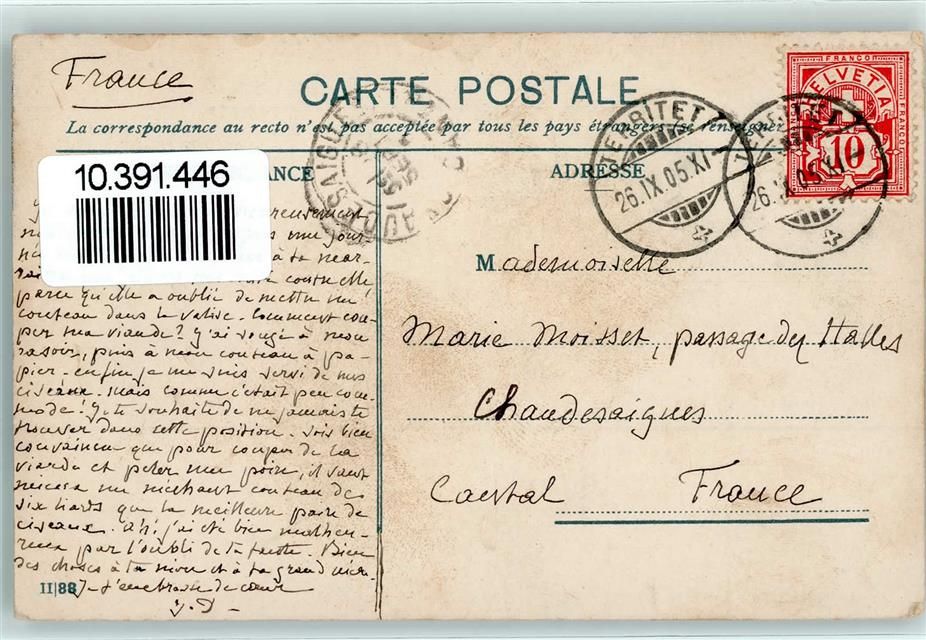 France
CARTE POSTALE
La correspondance au recto n'est pas acceptée par tous les pays étrangers (se renseigner
FRANCO
HELVETIA
10
FRANCO
TERRITET
26.IX.05.XI
TERRITET
26.IX.05.XI
10.391.446
ANCE
ADRESSE
Mademoiselle
Marie Moisset, passage des Halles
Chaudesaigues
Cantal France
parce qu'elle a oublié de mettre un
couteau dans la valise. Comment cou-
per ma viande? J'ai songé à mon
rasoir, puis à mon couteau à pa-
pier. enfin je me suis servi de mes
ciseaux. Mais comme c'était peu com-
mode! Je te souhaite de ne jamais te
trouver dans cette position. Sois bien
convaincue que pour couper de la
viande et peler une poire, il vaut
mieux un méchant couteau de
six liards que la meilleure paire de
ciseaux. Ah! j'ai été bien malheu-
reux par l'oubli de ta tante. Bien
des choses à ta mère et à ta grand'mère.
Je t'embrasse de cœur
II|88